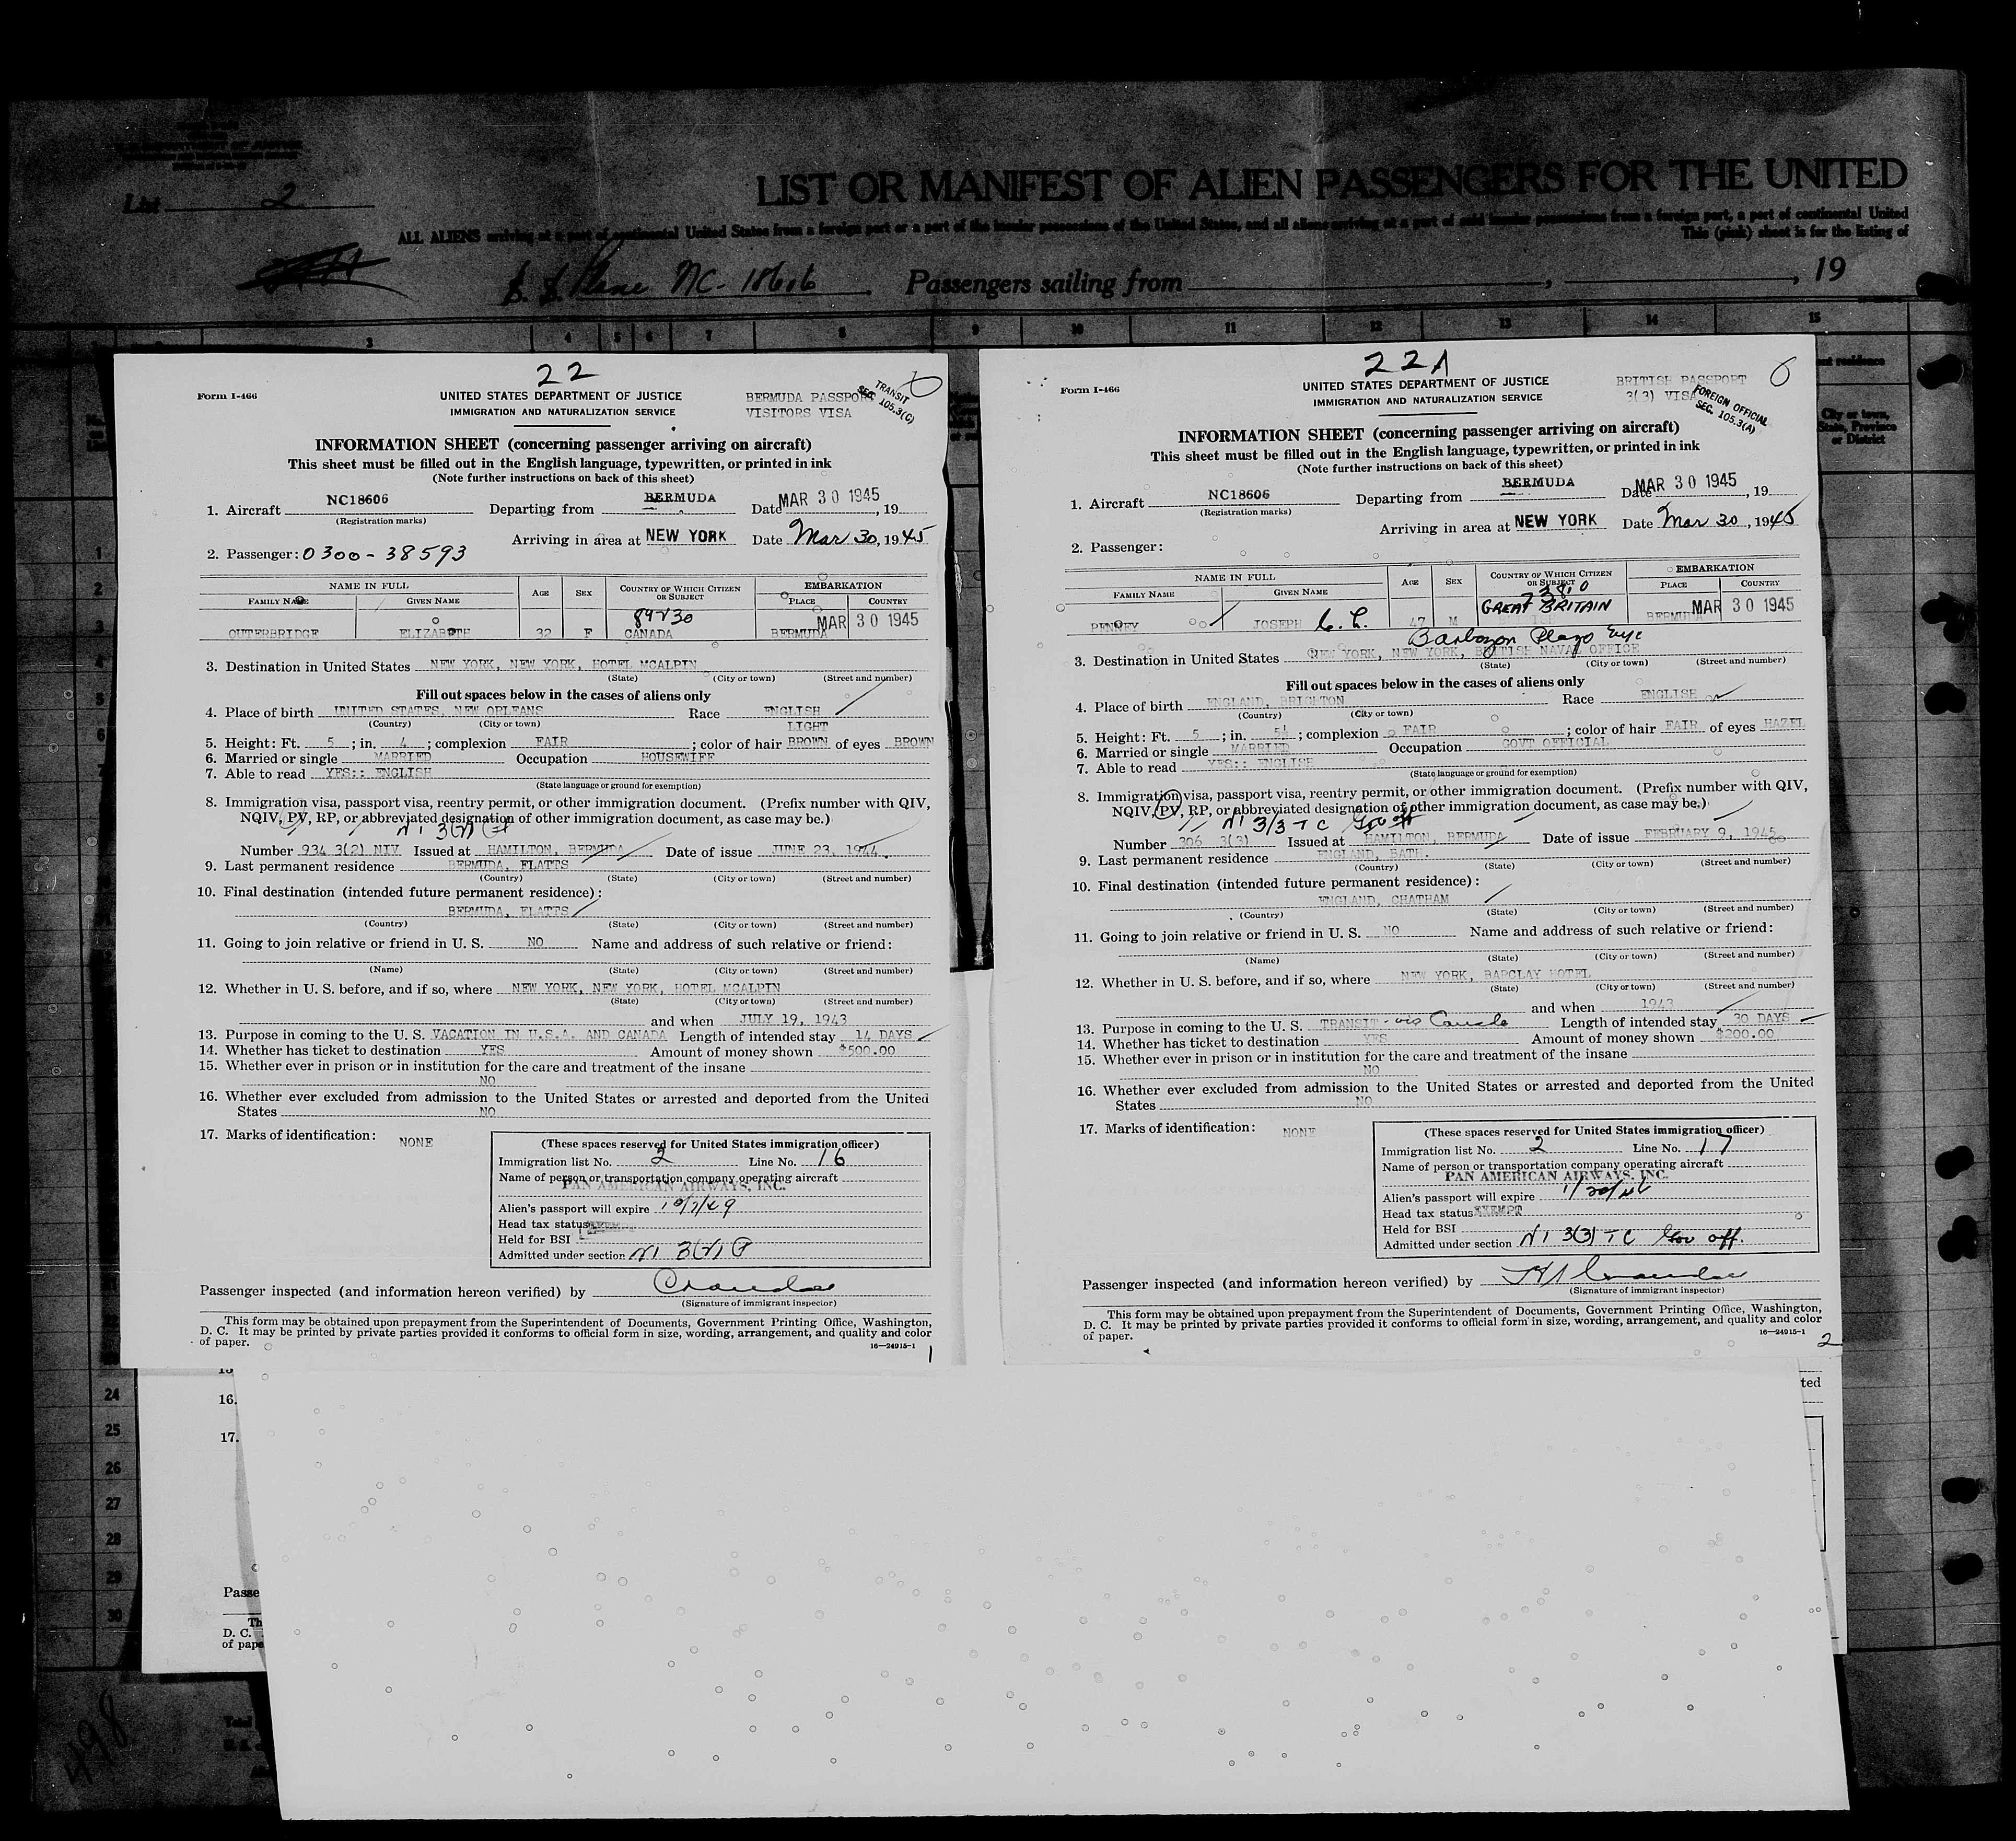 List 2
LIST OR MANIFEST OF ALIEN PASSENGERS FOR THE UNITED
ALL ALIENS arriving at a port of continental United States from a foreign port or a port of the insular possessions of the United States, and all aliens arriving at a port of said insular possessions from a foreign port, a port of continental United
This (pink) sheet is for the listing of
NC-18606 Passengers sailing from , , 19
3 4 5 6 7 8 9 10 11 12 13 14 15
22
Form I-466
UNITED STATES DEPARTMENT OF JUSTICE
IMMIGRATION AND NATURALIZATION SERVICE
BERMUDA PASSPORT
VISITORS VISA
TRANSIT
SEC. 105.3(C)
INFORMATION SHEET (concerning passenger arriving on aircraft)
This sheet must be filled out in the English language, typewritten, or printed in ink
(Note further instructions on back of this sheet)
1. Aircraft NC18606 Departing from BERMUDA Date MAR 30 1945, 19
(Registration marks)
Arriving in area at NEW YORK Date Mar 30, 1945
2. Passenger: 0300-38593
NAME IN FULL AGE SEX COUNTRY OF WHICH CITIZEN OR SUBJECT EMBARKATION
FAMILY NAME GIVEN NAME PLACE COUNTRY
OUTERBRIDGE ELIZABETH 32 F CANADA BERMUDA MAR 30 1945
3. Destination in United States NEW YORK, NEW YORK, HOTEL MCALPIN
(State) (City or town) (Street and number)
Fill out spaces below in the cases of aliens only
4. Place of birth UNITED STATES, NEW ORLEANS Race ENGLISH
(Country) (City or town)
LIGHT
5. Height: Ft. 5 ; in. 4 ; complexion FAIR ; color of hair BROWN of eyes BROWN
6. Married or single MARRIED Occupation HOUSEWIFE
7. Able to read YES:: ENGLISH
(State language or ground for exemption)
8. Immigration visa, passport visa, reentry permit, or other immigration document. (Prefix number with QIV,
NQIV, PV, RP, or abbreviated designation of other immigration document, as case may be.)
Number 934 3(2) NIV Issued at HAMILTON, BERMUDA Date of issue JUNE 23, 1944.
9. Last permanent residence BERMUDA, FLATTS
(Country) (State) (City or town) (Street and number)
10. Final destination (intended future permanent residence):
BERMUDA, FLATTS
(Country) (State) (City or town) (Street and number)
11. Going to join relative or friend in U. S. NO Name and address of such relative or friend:
(Name) (State) (City or town) (Street and number)
12. Whether in U. S. before, and if so, where NEW YORK, NEW YORK, HOTEL MCALPIN
(State) (City or town) (Street and number)
and when JULY 19, 1943
13. Purpose in coming to the U. S. VACATION IN U.S.A. AND CANADA Length of intended stay 14 DAYS
14. Whether has ticket to destination YES Amount of money shown $500.00
15. Whether ever in prison or in institution for the care and treatment of the insane
NO
16. Whether ever excluded from admission to the United States or arrested and deported from the United
States NO
17. Marks of identification: NONE
(These spaces reserved for United States immigration officer)
Immigration list No. 2 Line No. 16
Name of person or transportation company operating aircraft
PAN AMERICAN AIRWAYS, INC.
Alien's passport will expire 10/7/49
Head tax status EXEMPT
Held for BSI
Admitted under section
Passenger inspected (and information hereon verified) by
(Signature of immigrant inspector)
This form may be obtained upon prepayment from the Superintendent of Documents, Government Printing Office, Washington,
D. C. It may be printed by private parties provided it conforms to official form in size, wording, arrangement, and quality and color
of paper.
16—24915-1
1
22A
Form I-466
UNITED STATES DEPARTMENT OF JUSTICE
IMMIGRATION AND NATURALIZATION SERVICE
BRITISH PASSPORT
3(3) VISA
FOREIGN OFFICIAL
SEC. 105.3(A)
6
INFORMATION SHEET (concerning passenger arriving on aircraft)
This sheet must be filled out in the English language, typewritten, or printed in ink
(Note further instructions on back of this sheet)
1. Aircraft NC18606 Departing from BERMUDA Date MAR 30 1945, 19
(Registration marks)
Arriving in area at NEW YORK Date Mar 30, 1945
2. Passenger:
NAME IN FULL AGE SEX COUNTRY OF WHICH CITIZEN OR SUBJECT EMBARKATION
FAMILY NAME GIVEN NAME PLACE COUNTRY
PENNEY JOSEPH C. L. 47 M GREAT BRITAIN BERMUDA MAR 30 1945
Barbizon Plaza NYC
3. Destination in United States NEW YORK, NEW YORK, BRITISH NAVAL OFFICE
(State) (City or town) (Street and number)
Fill out spaces below in the cases of aliens only
4. Place of birth ENGLAND, BRIGHTON Race ENGLISH
(Country) (City or town)
5. Height: Ft. 5 ; in. 5½ ; complexion FAIR ; color of hair FAIR of eyes HAZEL
6. Married or single MARRIED Occupation GOVT OFFICIAL
7. Able to read YES:: ENGLISH
(State language or ground for exemption)
8. Immigration visa, passport visa, reentry permit, or other immigration document. (Prefix number with QIV,
NQIV, PV, RP, or abbreviated designation of other immigration document, as case may be.)
NI 3/3 TC Gov off
Number 306 3(3) Issued at HAMILTON, BERMUDA Date of issue FEBRUARY 9, 1945
9. Last permanent residence ENGLAND, BATH.
(Country) (State) (City or town) (Street and number)
10. Final destination (intended future permanent residence):
ENGLAND, CHATHAM
(Country) (State) (City or town) (Street and number)
11. Going to join relative or friend in U. S. NO Name and address of such relative or friend:
(Name) (State) (City or town) (Street and number)
12. Whether in U. S. before, and if so, where NEW YORK, BARCLAY HOTEL
(State) (City or town) (Street and number)
and when 1943
13. Purpose in coming to the U. S. TRANSIT Length of intended stay 30 DAYS
14. Whether has ticket to destination YES Amount of money shown $200.00
15. Whether ever in prison or in institution for the care and treatment of the insane
NO
16. Whether ever excluded from admission to the United States or arrested and deported from the United
States NO
17. Marks of identification: NONE
(These spaces reserved for United States immigration officer)
Immigration list No. 2 Line No. 17
Name of person or transportation company operating aircraft
PAN AMERICAN AIRWAYS, INC.
Alien's passport will expire
Head tax status EXEMPT
Held for BSI
Admitted under section NI 3(3) TC Gov off.
Passenger inspected (and information hereon verified) by
(Signature of immigrant inspector)
This form may be obtained upon prepayment from the Superintendent of Documents, Government Printing Office, Washington,
D. C. It may be printed by private parties provided it conforms to official form in size, wording, arrangement, and quality and color
of paper.
16—24915-1
2
City or town,
State, Province
or District
1
2
3
4
5
6
24
25
26
27
28
29
30
16.
17.
Passe
Th
D. C.
of pape
ted
498